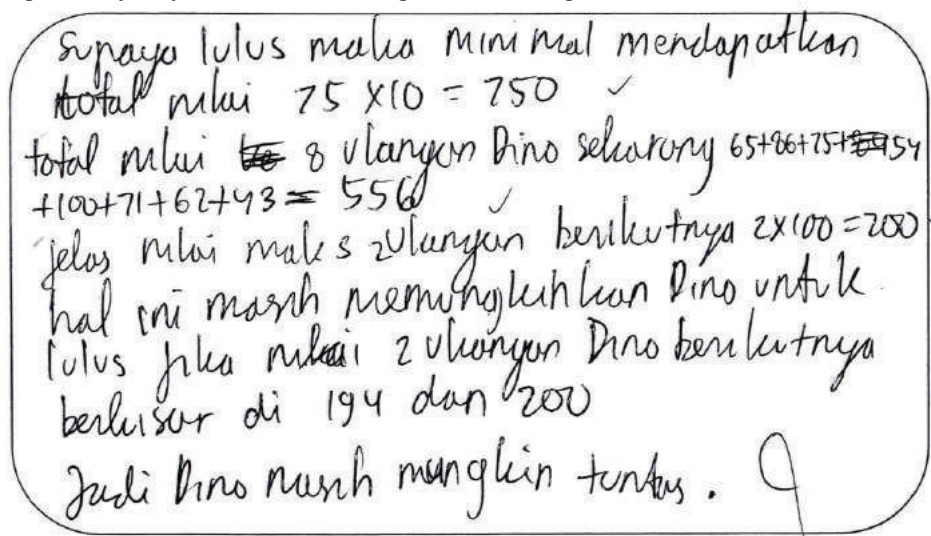 supaya lulus maka minimal mendapatkan
total nilai 75 x 10 = 750 ✓
total nilai 8 ulangan Dino sekarang 65+86+75+54
+100+71+62+43 = 556 ✓
jelas nilai maks 2 ulangan berikutnya 2x100=200
hal ini masih memungkinkan Dino untuk
lulus jika nilai 2 ulangan Dino berikutnya
berkisar di 194 dan 200
Jadi Dino masih mungkin tuntas.